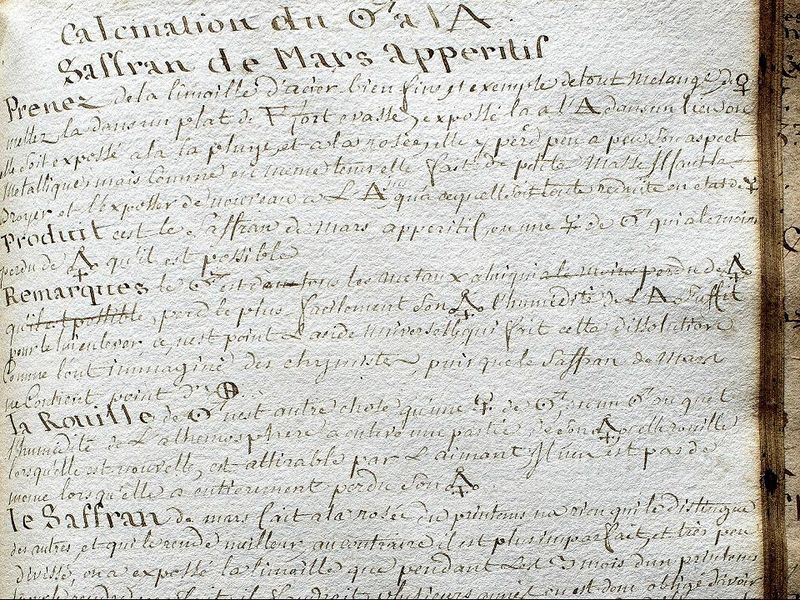 Calcination du ♂ a l 🜁
Saffran de Mars apperitif
Prenez de la limaille d'acier bien fine et exempte de tout melange de ♀
mettez la dans un plat de fort evassé, exposséz la a l'🜁 dans un lieu ou
elle soit exposséé a la pluye et a la rosée elle y perd peu a peu son aspect
metallique; mais comme en meme tems elle fait de petite masse Il faut la
broyer et l'exposser de nouveau a L'🜁 jusqua ce quelle soit toute reduitte en etat de
Produit c'est le Saffran de mars apperitif, ou une de ♂ qui a le moins
perdu de 🜍 qu'il est possible
Remarques le ♂ est de tous les metaux celui qui a le moins perdu de 🜍
qu'il est possible, perd le plus facilement son 🜍 l'humidité de L'🜁 suffit
pour le lui enlever ce n'est point L'acide universelle qui fait cette dissolution
Comme l'ont immaginé des chymistes puisque le Saffran de Mars
ne Contient point d'
la Rouille de ♂ n'est autre chose qu'une de ♂ ou un ♂ au quel
l'humidité de L'athmosphere a enlevé une partie de son 🜍, elle rouille
lorsqu'elle est nouvelle, est attirable par L'aimant, Il n'en est pas de
meme lorsqu'elle a entierement perdu son 🜍.
le Saffran de mars fait a la rosée du printems n'a rien qui le distingue
des autres, et qui le rende meilleur, au contraire il est plus imparfait, et tres peu
divissé, on a expossé la limaille que pendant les 3 mois d'un printems
plusieurs année, on est donc obligé d'avoir